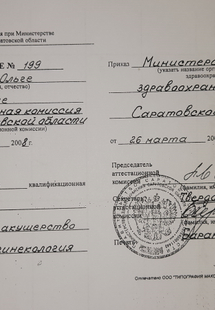 а при Министерстве
ратовской области
Е № 199
Ольге
, отчество)
ная комиссия
вской области
ционной комиссии)
2008 г.
квалификационная
акушерство
гинекология
Приказ Министера
(указать название орга
здравоохра
здравоохран
Саратовской
от 26 марта 200
Председатель
аттестационной
комиссии
(фамилия, и
Секретарь Тверда
аттестационной
комиссии
(фамилия, и
Печать Баран
Отпечатано ООО "ТИПОГРАФИЯ